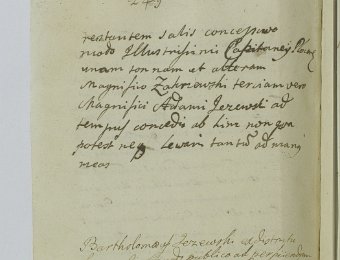 249
restantem salis concessivo
modo Illustrissimis Capitaney
unam tonnam et alteram
Magnifico Zakrzewski tertiam vero
Magnifici Adami Jezewski ad
tempus concedis ab hinc non
potest neq levari tantũ ad man
meas
Bartholomæy Jezewski
publico ad